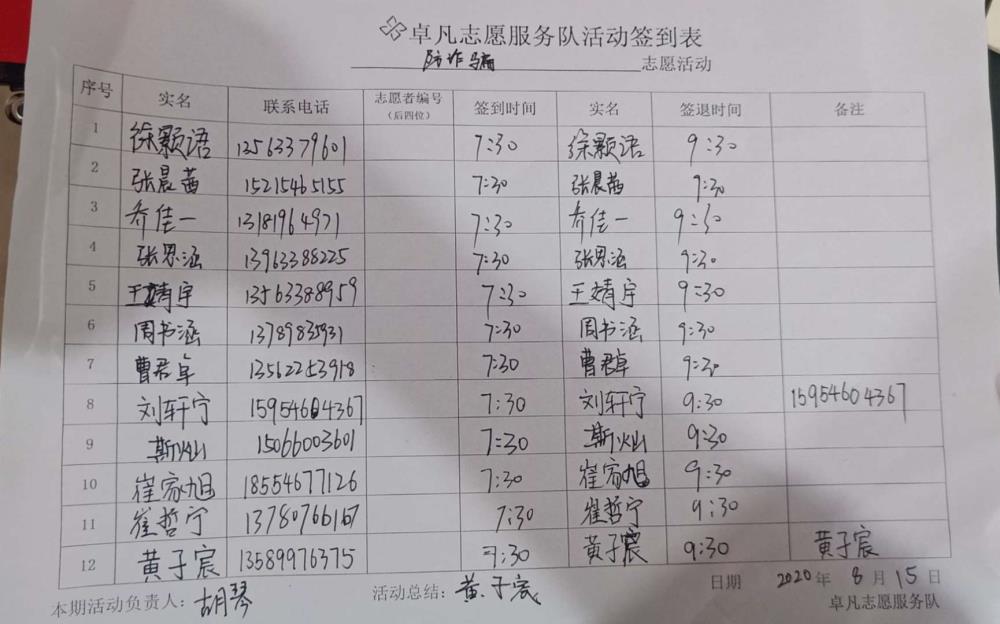 卓凡志愿服务队活动签到表
防诈骗 志愿活动
序号 实名 联系电话 志愿者编号（后四位） 签到时间 实名 签退时间 备注
1 徐颢语 13563379601 7:30 徐颢语 9:30
2 张晨茜 15215465155 7:30 张晨茜 9:30
3 乔佳一 13181964971 7:30 乔佳一 9:30
4 张思涵 13963388225 7:30 张思涵 9:30
5 王婧宇 13563388959 7:30 王婧宇 9:30
6 周书涵 13789835931 7:30 周书涵 9:30
7 曹君卓 13562253918 7:30 曹君卓 9:30
8 刘轩宁 15954604367 7:30 刘轩宁 9:30 15954604367
9 15066003601 7:30 9:30
10 崔家旭 18554677126 7:30 崔家旭 9:30
11 崔哲宁 13780766167 7:30 崔哲宁 9:30
12 黄子宸 13589976375 7:30 黄子宸 9:30 黄子宸
本期活动负责人：胡琴 活动总结：黄子宸 日期 2020年8月15日
卓凡志愿服务队